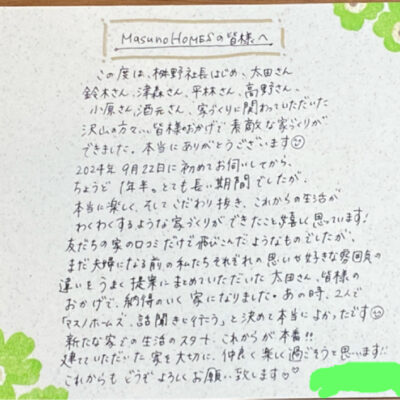 MasunoHOMESの皆様へ
この度は、桝野社長はじめ、太田さん
鈴木さん、津森さん、平林さん、高野さん、
小原さん、酒元さん、家づくりに関わっていただいた
沢山の方々…皆様のおかげで素敵な家づくりが
できました。本当にありがとうございます
2024年9月22日に初めてお伺いしてから、
ちょうど1年半。とても長い期間でしたが、
本当に楽しく、そしてこだわり抜き、これからの生活が
わくわくするような家づくりができたこと嬉しく思っています!
友だちの家の口コミだけで飛びこんだようなものでしたが、
まだ夫婦になる前の私たちそれぞれの思いや好きな雰囲気の
違いをうまく提案にまとめていただいた太田さん、皆様の
おかげで、納得のいく家になりました。あの時、2人で
「マスノホームズ、話聞きに行こう」と決めて本当によかったです
新たな家での生活のスタート、これからが本番!!
建てていただいた家を大切に、仲良く楽しく過ごそうと思います!!
これからもどうぞよろしくお願い致します♡♡